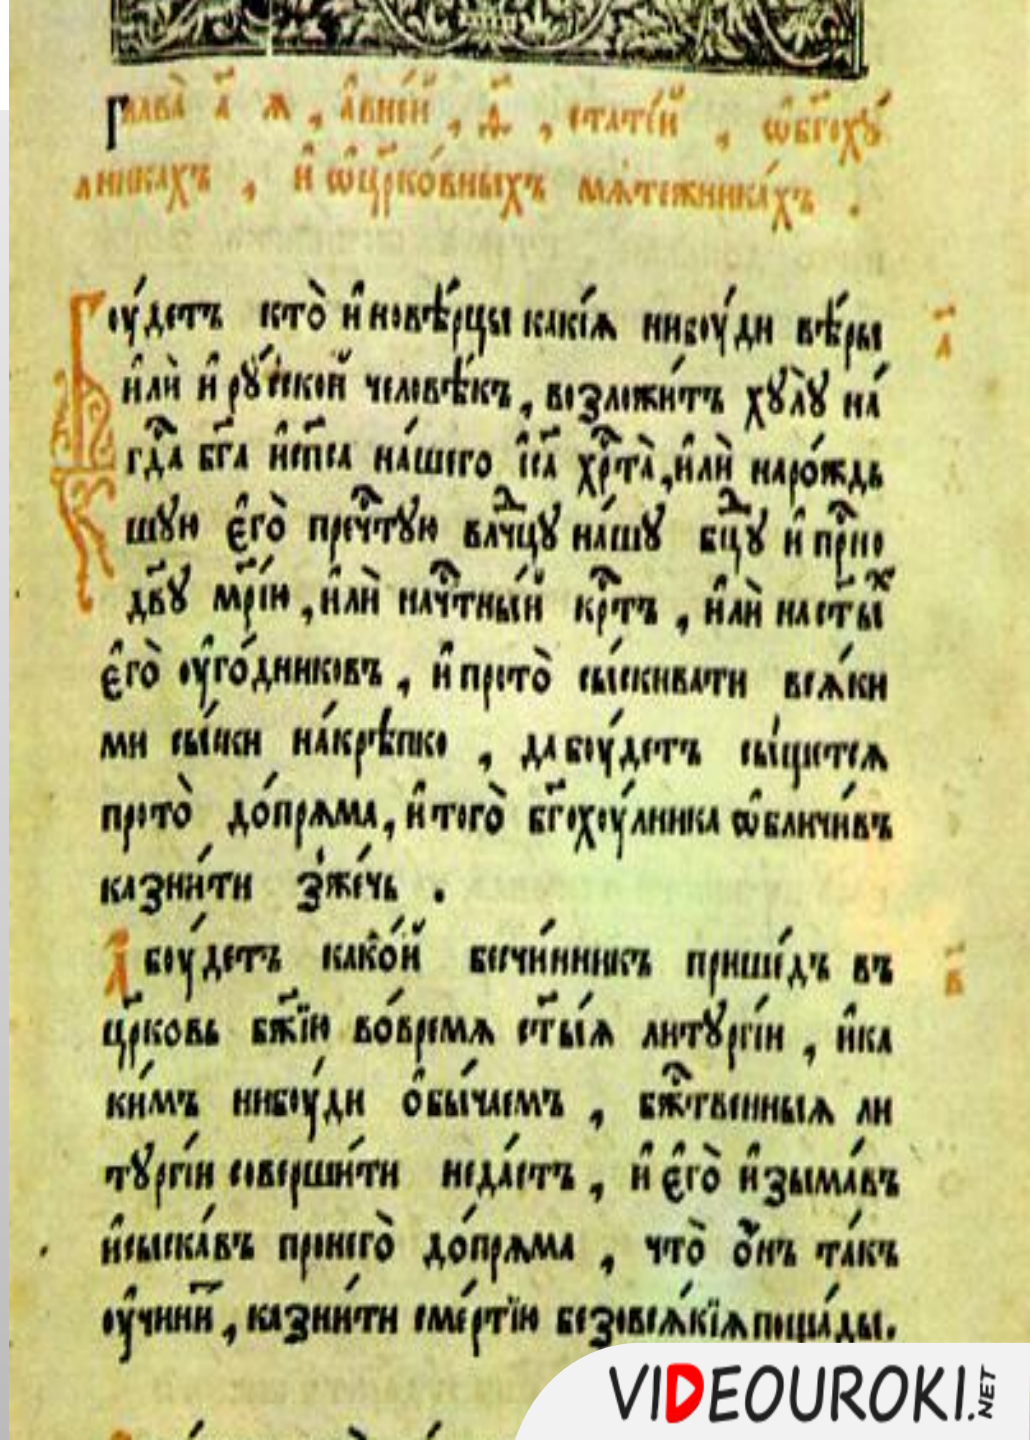 Глава̀ а҃ я , а҆вне́й , д҃ , статі́й , ѡ҆бг҃охꙋ́
лникахъ , и҆ ѡ҆цр҃ко́вныхъ мѧте́жника́хъ .
Боу́детъ кто̀ и҆новѣ́рцы какі́ѧ нибоу́ди вѣ́ры
а҃
и҆лѝ и҆ рꙋ́сской человѣ́къ , возложи́тъ хꙋлꙋ̀ на́
гд҇а бг҃а и҆сп҃са на́шего і҆с҃а хрⷭ҇та̀ , и҆лѝ наро́ждь
шꙋю є҆го̀ пречⷭ҇тꙋю влⷣчцꙋ на́шꙋ бцⷣꙋ и҆ прⷭ҇но
дв҃ꙋ мр҃і́ю , и҆лѝ начⷭ҇тны́й крⷭ҇тъ , и҆лѝ наст҃ыⷯ
є҆го̀ оу҆го́дниковъ , и҆ прото̀ сы́скивати всѧ́ки
ми сы́ски на́крѣпко , дабоу́детъ сы́щетсѧ
прото̀ до́прѧма , и҆того̀ бг҃охоу́лника ѡ҆бличи́въ
казни́ти зже́чь .
А боу́детъ како́й безчи́нникъ прише́дъ въ
в҃
цр҃ковь бж҃їю во́времѧ ст҃ы́ѧ литꙋргі́и , и҆ка
ки́мъ нибоу́ди о҆бы́чаемъ , бжⷭ҇твенныѧ ли
тꙋргі́и соверши́ти неда́стъ , и҆ є҆го̀ и҆зыма́въ
и҆сыска́въ пронего̀ до́прѧма , что̀ о҆́нъ та́къ
оу҆чини́т , казни́ти сме́ртїю безовсѧ́кїѧ поща́ды .
VIDEOUROKI.NET